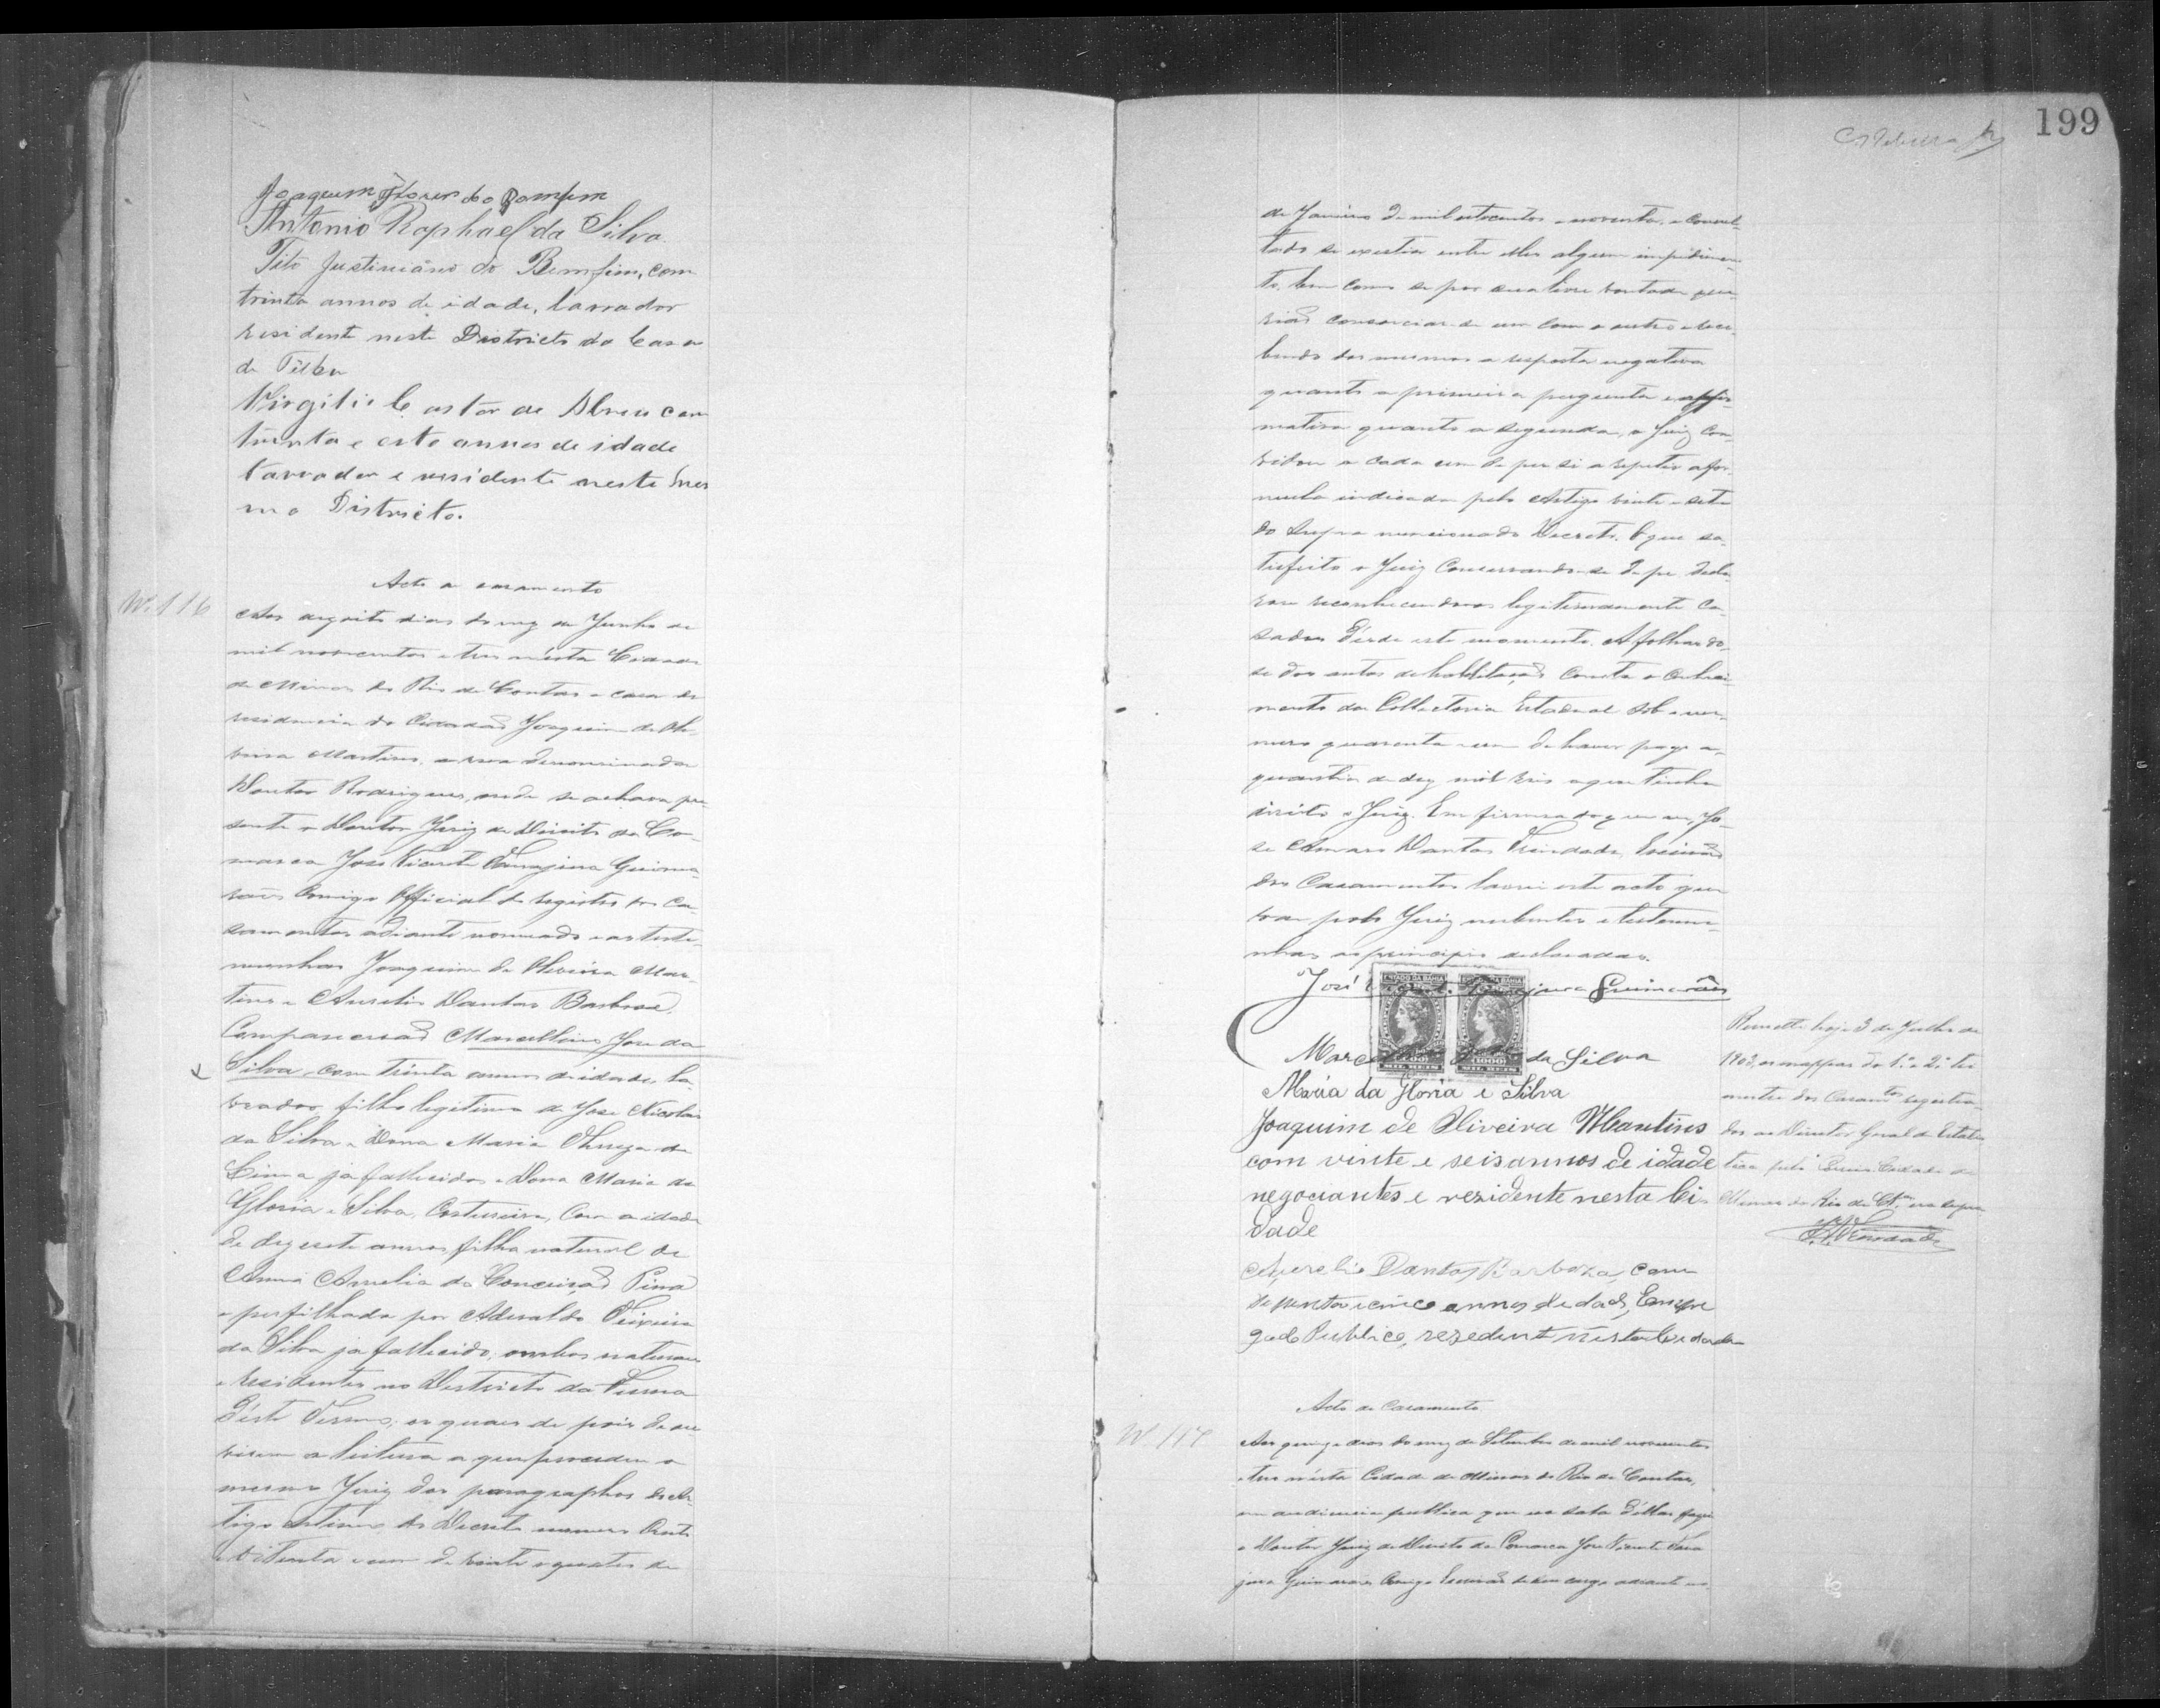 Joaquim Flores do Bomfim
Antonio Raphael da Silva.
Tito Justiniano do Bomfim, com
trinta annos de idade, lavrador
residente neste Districto do Casa
de Telha
Virgilio Castor de Abreu com
trinta e oito annos de idade
lavrador e residente neste mes
mo Districto.
Acto de casamento
Nº 116
Aos dezoito dias do mez de Junho de
mil novecentos e tres nésta Cidade
de Minas do Rio de Contas e casa de
residencia do Cidadão Joaquim de Oli-
veira Martins, a rua denominada
Doutor Rodrigues, onde se achava pre-
sente o Doutor Juiz de Direito da Co-
marca José Vicente Guima-
rães Comigo Official do registro dos Ca-
samentos adiante nomeado e as teste-
munhas Joaquim de Oliveira Mar-
tins e Aurelio Dantas Barbosa.
Compareceraõ Marcellino Jose da
Silva, com trinta annos de idade, la-
vrador, filho legitimo de Jose Nicolau
da Silva e Dona Maria Thereza de
Lima já fallecidos e Dona Maria da
Gloria e Silva, Costureira, com a idade
de dezesete annos, filha natural de
Anna Amelia da Conceição Pina
e perfilhada por Aderaldo Teixeira
da Silva já fallecido, ambos naturaes
e residentes no Districto da Furna
déste Termo; os quaes de pois de ou
virem a leitura a que procedeu o
mesmo Juiz dos paragraphos do Ar-
tigo setimo do Decreto numero Cento
e oitenta e um de vinte e quatro de
199
de Janeiro de mil oitocentos e noventa, e consul-
tado se existia entre elles algum impedimen-
to, bem como se por sua livre vontade que-
riaõ consorciar-se um com o outro e rece-
bendo dos mesmos a resposta negativa
quanto a primeira pergunta e affir-
mativa quanto a segunda, o Juiz con-
vidou a cada um de per si a repetir a for-
mula indicada pelo Artigo vinte e sete
do supra mencionado Decreto. O que sa-
tisfeito o Juiz Conservando-se de pé decla-
rou reconhecendo-os legitimamente ca-
sados desde este momento. A folhas do-
se dos autos de habilitaçaõ consta o Conheci-
mento da Collectoria Estadoal sob o nu-
mero quarenta e um de haver pago a
quantia de dez mil reis a que tinha
direito o Juiz. Em firmesa do que eu, Jo-
se Amaro Dantas Trindade, Escrivaõ
dos Casamentos lavrei este acto que
vae pelo Juiz nubentes e testemu-
nhas as principio declaradas.
José Guimarães
ESTADO DA BAHIA
1000
MIL REIS
Marcellino José da Silva
Maria da Gloria e Silva
Joaquim de Oliveira Martins
com vinte e seis annos de idade
negociantes e rezidente nesta Ci-
dade
Aurelio Dantas Barboza, com
trinta e cinco annos de idade, Empre
gado Publico, rezidente nesta Cidade
Remetti hoje 3 de Julho de
1903, os mappas do 1º e 2º tri
mestre dos Casamtos registra-
dos ao Director Geral de Estatis
tica
Minas do Rio de Ctas era supra
Trindade
Acto de Casamento
Nº 117
Aos quinze dias do mez de Setembro de mil novecentos
e tres nésta Cidade de Minas do Rio de Contas,
em audiencia publica que na sala déllas fazia
o Doutor Juiz de Direito da Comarca Jose Vicente
Guimarães Comigo Escrivaõ de seu cargo adiante no-